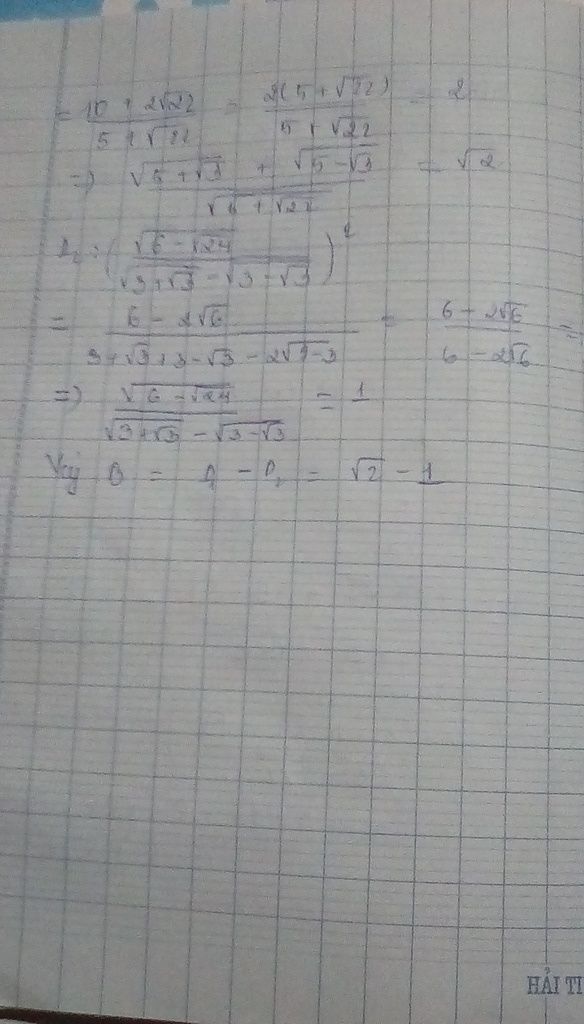 = 10 + 2√22 / 5 + √22 = 2(5 + √22) / 5 + √22 = 2
=> √5 + √3 + √5 - √3 / √5 + √22 = √2
: ( √6 - √24 / √3+√3 - √3-√3 )²
= 6 - 2√6 / 3+√3+3-√3-2√9-3 = 6 - 2√6 / 6 - 2√6 =
=> √6 - √24 / √3+√3 - √3-√3 = 1
Vậy B = - = √2 - 1
HẢI TI